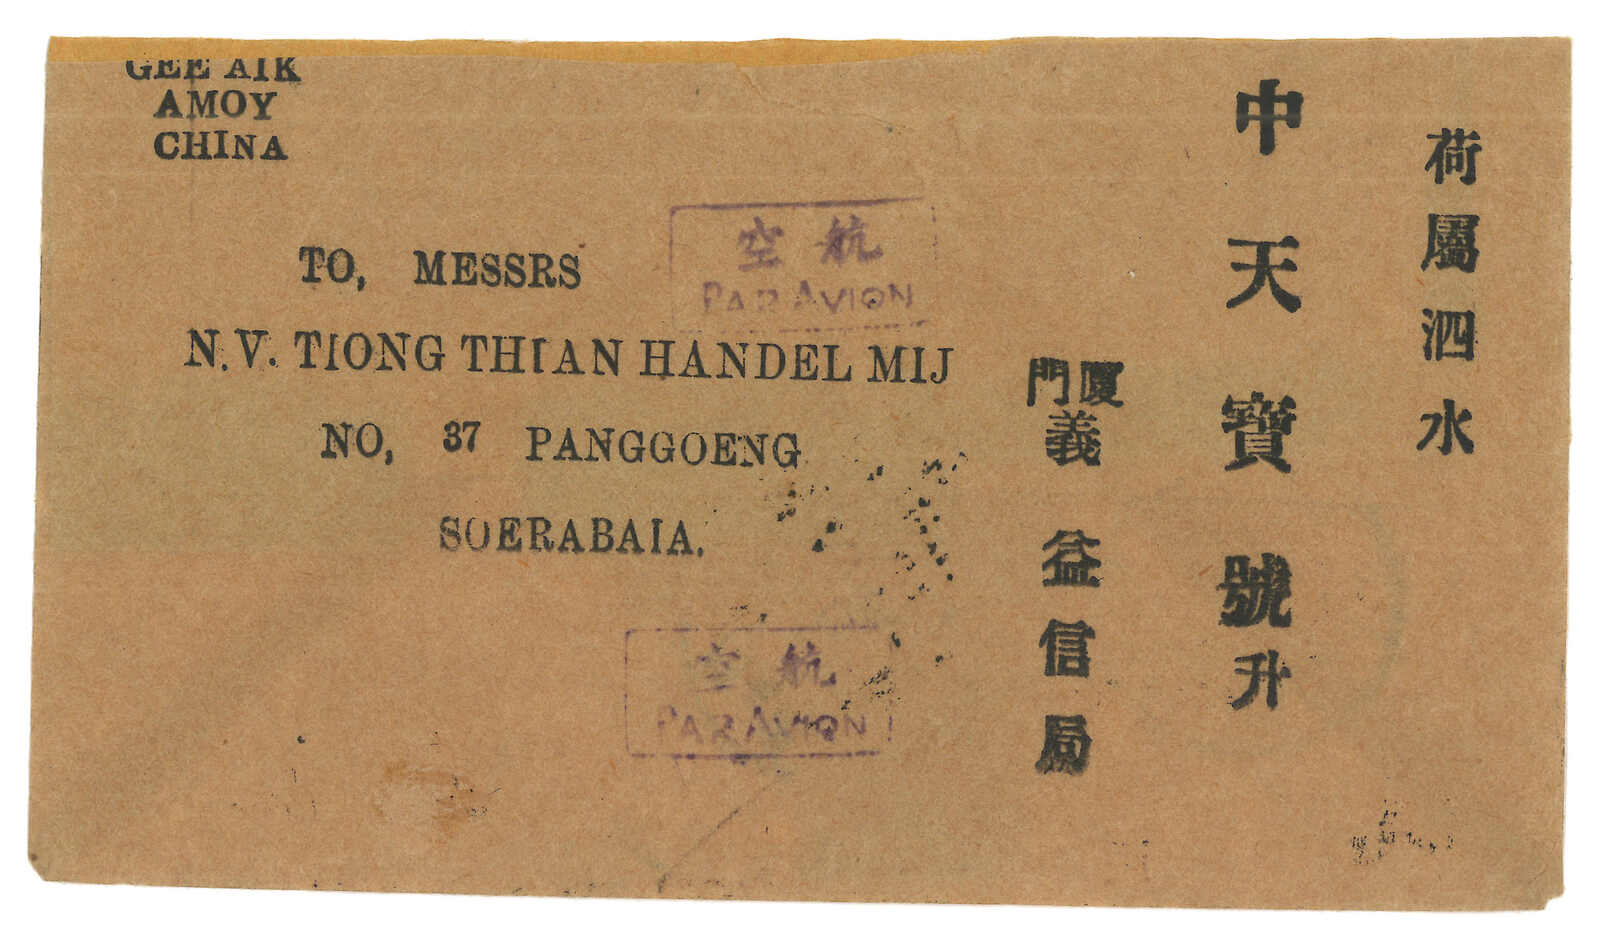 GEE AIK
AMOY
CHINA
空航
PAR AVION
TO, MESSRS
N.V. TIONG THIAN HANDEL MIJ
NO, 37 PANGGOENG
SOERABAIA.
空航
PAR AVION
荷屬泗水
中天寶號升
門廈
義益信局